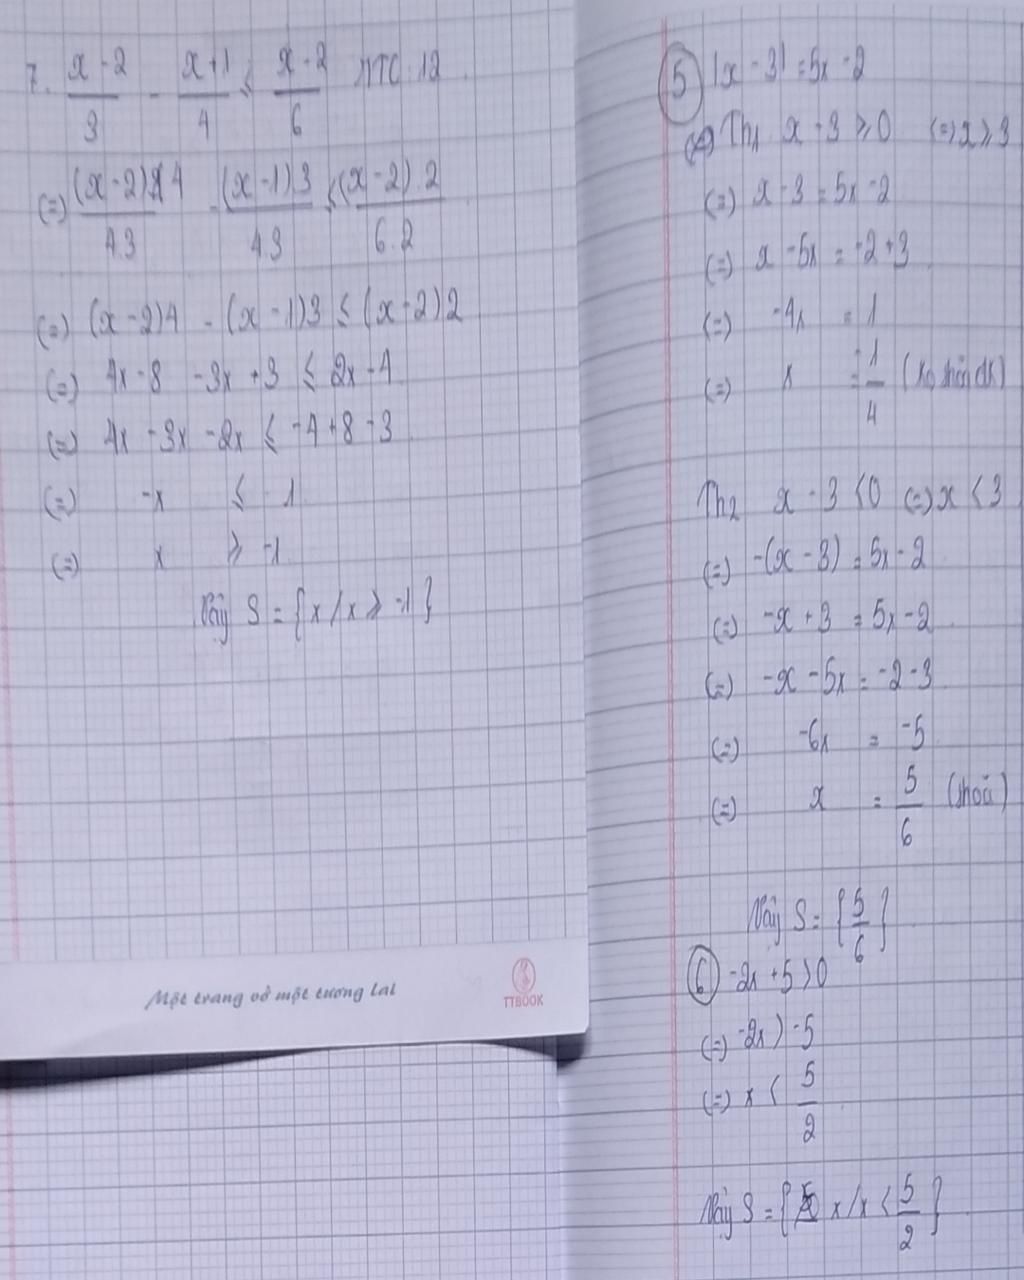 7. x-2/3 - x+1/4 ≤ x-2/6 MTC: 12
(=) (x-2)4/4.3 - (x-1)3/4.3 ≤ (x-2).2/6.2
(=) (x-2)4 - (x-1)3 ≤ (x-2)2
(=) 4x-8 -3x+3 ≤ 2x-4
(=) 4x -3x -2x ≤ -4+8-3
(=) -x ≤ 1
(=) x ≥ -1
Vậy S = {x/x ≥ -1}
Một trang vở một tương lai
TTBOOK
5 |x-3| = 5x-2
Th1 x-3 ≥ 0 (=) x ≥ 3
(=) x-3 = 5x-2
(=) x-5x = -2+3
(=) -4x = 1
(=) x = -1/4 (Ko thỏa đk)
Th2 x-3 < 0 (=) x < 3
(=) -(x-3) = 5x-2
(=) -x+3 = 5x-2
(=) -x-5x = -2-3
(=) -6x = -5
(=) x = 5/6 (thoả)
Vậy S = {5/6}
6 -2x+5 > 0
(=) -2x > -5
(=) x < 5/2
Vậy S = {x/x < 5/2}